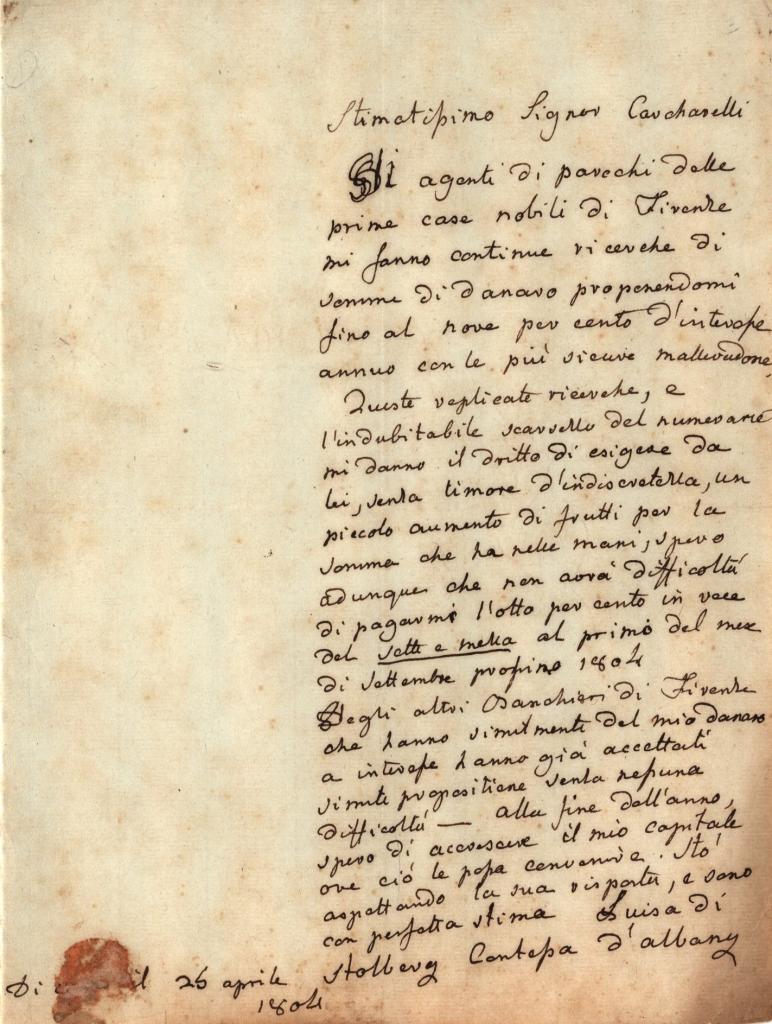 Stimatissimo Signor Carcharelli
Gli agenti di parechi delle
prime case nobili di Firenze
mi fanno continue ricerche di
somme di danaro proponendomi
fino al nove per cento d'interesse
annuo con le più sicure mallevadorie,
Queste replicate ricerche, e
l'indubitabile scarsezza del numerario
mi danno il dritto di esigere da
lei, senza timore d'indiscretezza, un
piccolo aumento di frutti per la
somma che ha nelle mani, spero
adunque che non avrà difficoltà
di pagarmi l'otto per cento in vece
del sette e mezza al primo del mese
di settembre prossimo 1804
Degli altri Banchieri di Firenze
che hanno similmente del mio danaro
a interesse hanno già accettati
simile propositione senza nessuna
difficoltà — alla fine dell'anno,
spero di accrescere il mio capitale
ove ciò le possa convenire. Stò
aspettando la sua risposta, e sono
con perfetta stima Luisa di
Stolberg Contessa d'albany
Di il 26 aprile
1804